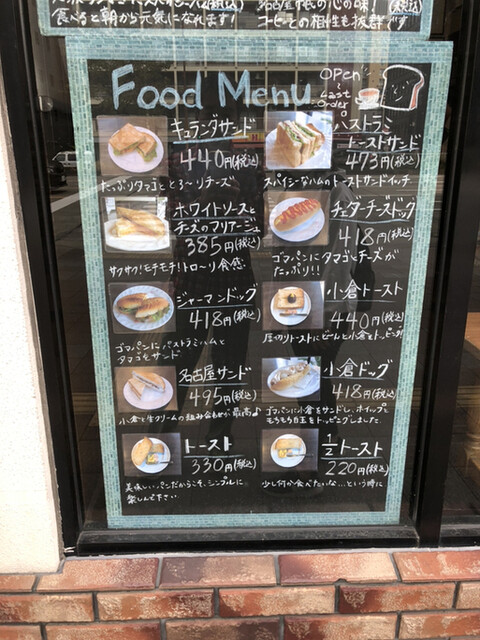 食べると朝から元気になれます!
コーヒーとの相性も抜群です
Food Menu
Open
Last
Order
キュランダサンド
440円(税込)
たっぷりタマゴととろ〜りチーズ
パストラミ
トーストサンド
473円(税込)
スパイシーなハムのトーストサンドイッチ
ホワイトソースと
チーズのマリアージュ
385円(税込)
サクサク!モチモチ!トロ〜リ食感
チェダーチーズドッグ
418円(税込)
ゴマパンにタマゴとチーズが
たっぷり!!
ジャーマンドッグ
418円(税込)
ゴマパンにパストラミハムと
タマゴをサンド
小倉トースト
440円(税込)
厚切りトーストにどーんと小倉をトッピング!
名古屋サンド
495円(税込)
小倉と生クリームの組み合わせが最高♪
小倉ドッグ
418円(税込)
ゴマパンに小倉をサンドし、ホイップと
をトッピングしました
トースト
330円(税込)
美味しいパンだからこそ、シンプルに
楽しんで下さい
1/2トースト
220円(税込)
少し何か食べたいな…という時に